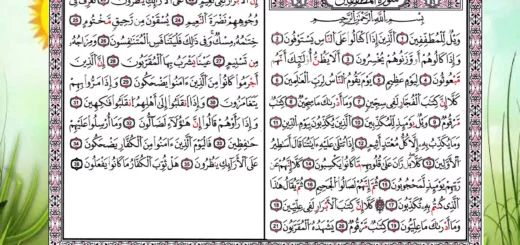 سُورَةُ الْمُطَفِّفِينَ
بِسْمِ اللَّهِ الرَّحْمَٰنِ الرَّحِيمِ
وَيْلٌ لِّلْمُطَفِّفِينَ ١ الَّذِينَ إِذَا اكْتَالُوا عَلَى النَّاسِ يَسْتَوْفُونَ ٢
وَإِذَا كَالُوهُمْ أَو وَّزَنُوهُمْ يُخْسِرُونَ ٣ أَلَا يَظُنُّ أُولَٰئِكَ أَنَّهُم
مَّبْعُوثُونَ ٤ لِيَوْمٍ عَظِيمٍ ٥ يَوْمَ يَقُومُ النَّاسُ لِرَبِّ الْعَٰلَمِينَ ٦
كَلَّا إِنَّ كِتَٰبَ الْفُجَّارِ لَفِي سِجِّينٍ ٧ وَمَا أَدْرَىٰكَ مَا سِجِّينٌ ٨ كِتَٰبٌ
مَّرْقُومٌ ٩ وَيْلٌ يَوْمَئِذٍ لِّلْمُكَذِّبِينَ ١٠ الَّذِينَ يُكَذِّبُونَ بِيَوْمِ الدِّينِ ١١
وَمَا يُكَذِّبُ بِهِ إِلَّا كُلُّ مُعْتَدٍ أَثِيمٍ ١٢ إِذَا تُتْلَىٰ عَلَيْهِ ءَايَٰتُنَا قَالَ أَسَٰطِيرُ
الْأَوَّلِينَ ١٣ كَلَّا بَلْ رَانَ عَلَىٰ قُلُوبِهِم مَّا كَانُوا يَكْسِبُونَ ١٤ كَلَّا إِنَّهُمْ عَن
رَّبِّهِمْ يَوْمَئِذٍ لَّمَحْجُوبُونَ ١٥ ثُمَّ إِنَّهُمْ لَصَالُوا الْجَحِيمِ ١٦ ثُمَّ يُقَالُ هَٰذَا
الَّذِي كُنتُم بِهِ تُكَذِّبُونَ ١٧ كَلَّا إِنَّ كِتَٰبَ الْأَبْرَارِ لَفِي عِلِّيِّينَ ١٨
وَمَا أَدْرَىٰكَ مَا عِلِّيُّونَ ١٩ كِتَٰبٌ مَّرْقُومٌ ٢٠ يَشْهَدُهُ الْمُقَرَّبُونَ ٢١
وُجُوهِهِمْ نَضْرَةَ النَّعِيمِ ٢٤ يُسْقَوْنَ مِن رَّحِيقٍ مَّخْتُومٍ ٢٥
خِتَٰمُهُ مِسْكٌ وَفِي ذَٰلِكَ فَلْيَتَنَافَسِ الْمُتَنَٰفِسُونَ ٢٦ وَمِزَاجُهُ
مِن تَسْنِيمٍ ٢٧ عَيْنًا يَشْرَبُ بِهَا الْمُقَرَّبُونَ ٢٨ إِنَّ الَّذِينَ
أَجْرَمُوا كَانُوا مِنَ الَّذِينَ ءَامَنُوا يَضْحَكُونَ ٢٩ وَإِذَا مَرُّوا بِهِمْ
يَتَغَامَزُونَ ٣٠ وَإِذَا انقَلَبُوا إِلَىٰ أَهْلِهِمُ انقَلَبُوا فَكِهِينَ ٣١
وَإِذَا رَأَوْهُمْ قَالُوا إِنَّ هَٰؤُلَاءِ لَضَالُّونَ ٣٢ وَمَا أُرْسِلُوا عَلَيْهِمْ
حَٰفِظِينَ ٣٣ فَالْيَوْمَ الَّذِينَ ءَامَنُوا مِنَ الْكُفَّارِ يَضْحَكُونَ ٣٤
عَلَى الْأَرَائِكِ يَنظُرُونَ ٣٥ هَلْ ثُوِّبَ الْكُفَّارُ مَا كَانُوا يَفْعَلُونَ ٣٦